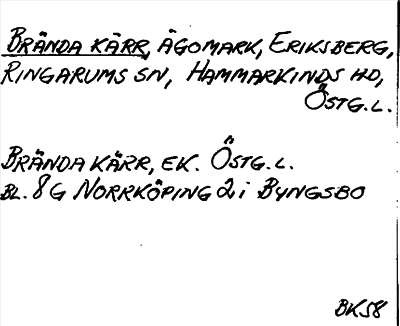 BRÄNDA KÄRR, ÄGOMARK, ERIKSBERG,
RINGARUMS SN, HAMMARKINDS HD,
ÖSTG. L.
BRÄNDA KÄRR, EK. ÖSTG. L.
BL. 8 G NORRKÖPING 2 i BYNGSBO
BK58